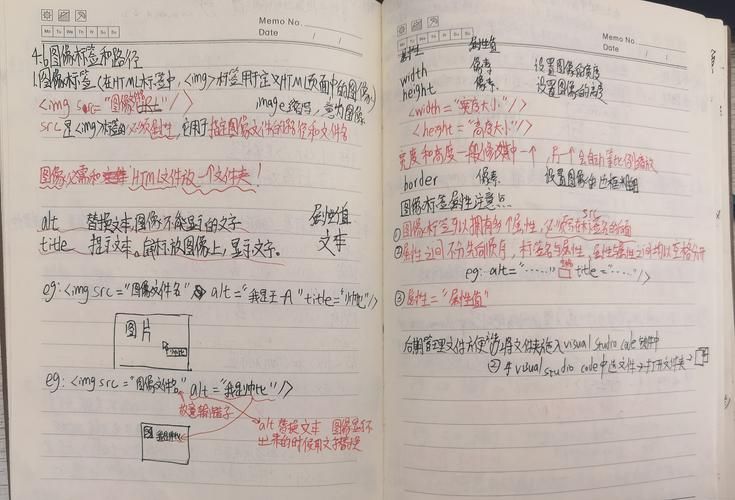 Memo No.
Mo Tu We Th Fr Sa Su
Date / /
4.6 图像标签和路径
1.图像标签(在HTML标签中,<img>标签用于定义HTML页面中的图像)
<img src="图像" /> image缩写,意为图像
src是<img>标签的必须属性,它用于指定图像文件的路径和文件名
图像必需和HTML文件放一个文件夹!
属性值
alt 替换文本,图像不能显示的文字
title 提示文本。鼠标放图像上,显示文字。 文本
eg:<img src="图像文件名" alt="我是王A" title="帅地"/>
图片
eg:<img src="图像文件名" alt="我是帅比"/>
故意输错了
alt替换文本 图像显示不
出来的时候用文字替换
Memo No.
Mo Tu We Th Fr Sa Su
Date / /
属性 属性值
width 像素 设置图像的宽度
height 像素 设置图像的高度
<width="宽度大小"/>
<height="高度大小"/>
宽度和高度一般修改其中一个,另一个会自动等比例缩放
border 像素 设置图像的边框粗细
图像标签属性注意点
①图像标签可以拥有多个属性,必须写在标签名的后面
src
②属性之间不分先后顺序,标签名与属性,属性与属性之间均以空格分开
eg: alt="……" 空格 title="……"/>
③属性="属性值"
后期管理文件方便 ①将文件夹拖入visual studio code软件中
②在visual studio code中选文件→打开文件夹→